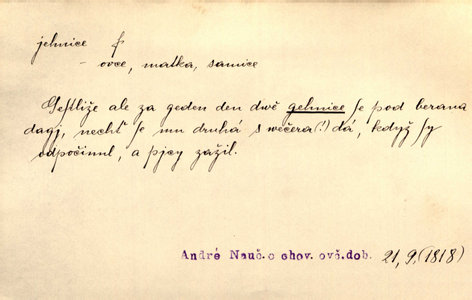 jehnice f
- ovce, matka, samice
Gestliže ale za geden den dwě gehnice se pod berana
dagj, nechť se mu druhá s wečera(!) dá, když sy
odpočinul, a pjcy zažil.
André Nauč.o chov. ovč.dob. 21, 9, (1818)